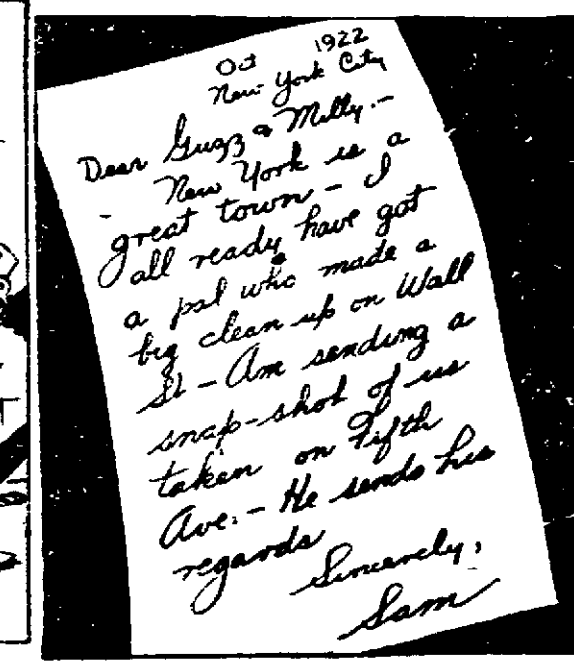 Oct 1922
New York City
Dear Guzz & Milly.-
- New York is a
great town - I
all ready have got
a pal who made a
big clean up on Wall
St - Am sending a
snap-shot of us
taken on Fifth
Ave. - He sends his
regards
Sincerely,
Sam